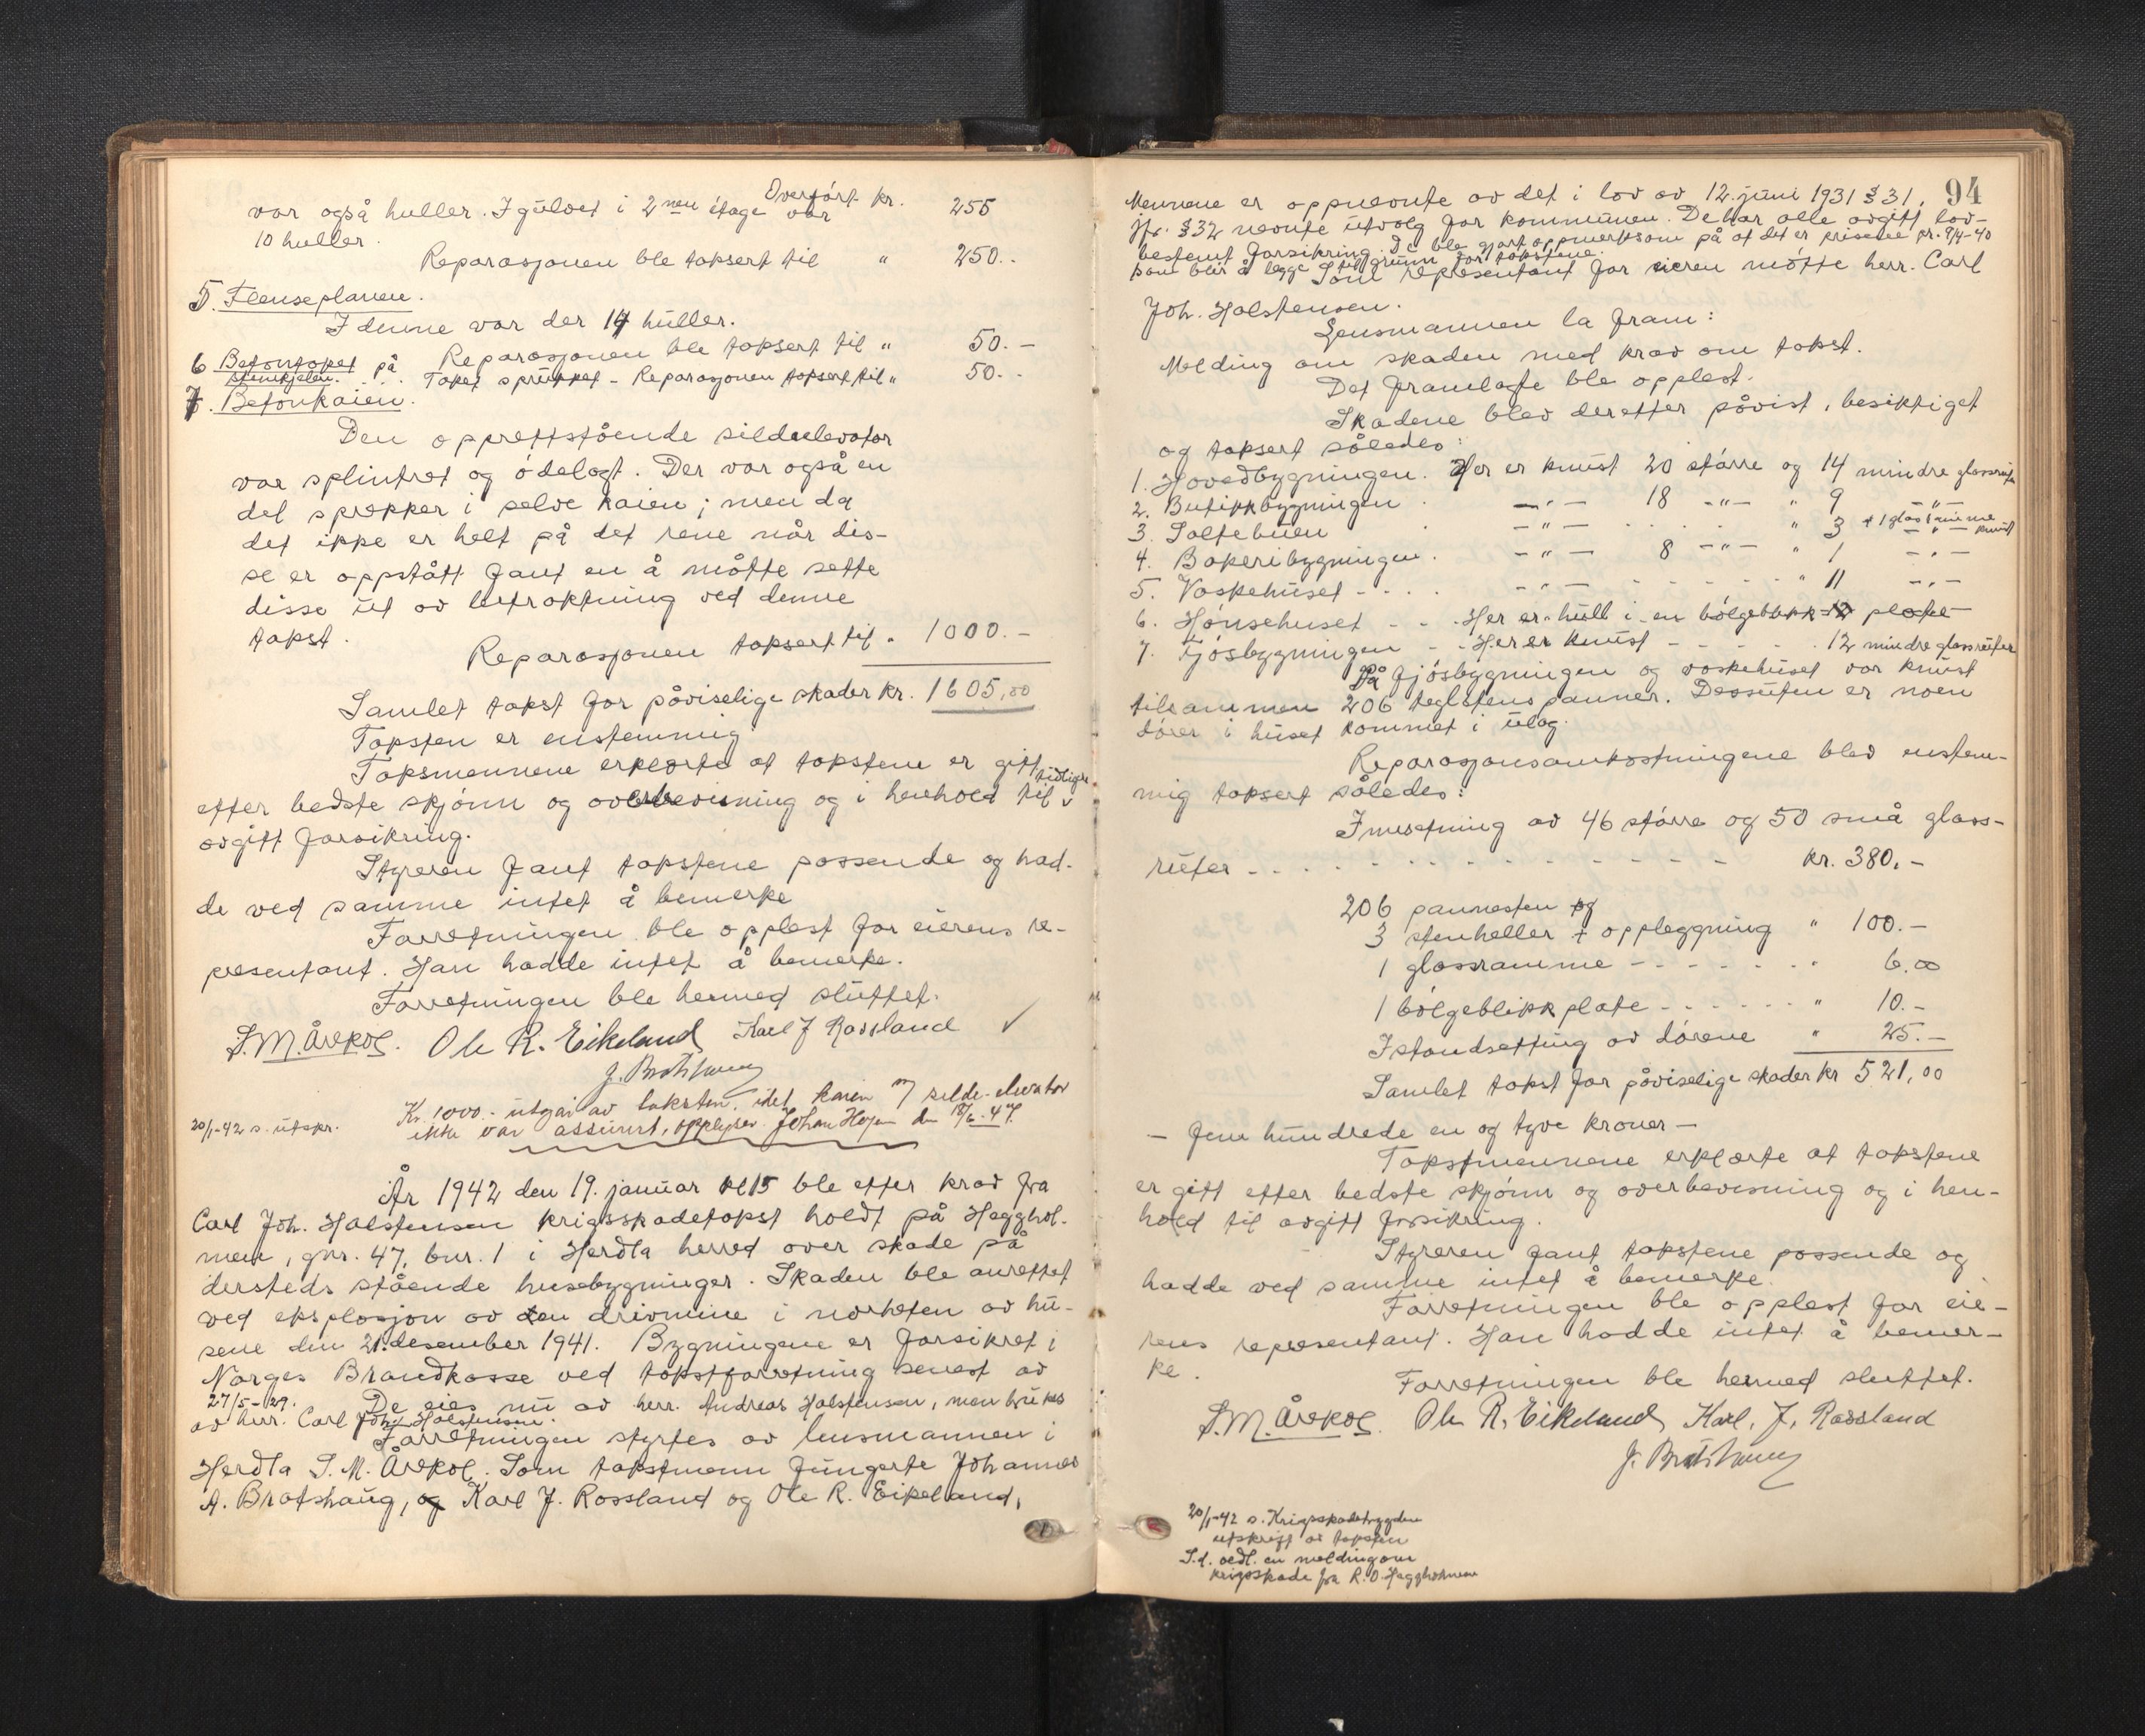 Overført kr. 255
var også huller. I gulvet i 2nen etage var
10 huller.
Reparasjonen ble taksert til " 250.-
5. Flenseplanen.
I denne var der 14 huller.
Reparasjonen ble taksert til " 50.-
6 Betontaket på
Taket sprukket - Reparasjonen taksert til " 50.-
7. Betonkaien.
Den opprettstående sildeelevator
var splintret og ødelagt. Der var også en
del sprekker i selve kaien; men da
det ikke er helt på det rene når dis-
se er oppstått fant en å måtte sette
disse ut av betraktning ved denne
takst.
Reparasjonen taksert til " 1000.-
Samlet takst for påviselige skader kr. 1605,00
Taksten er enstemmig
Taksmennene erklærte at takstene er gitt
efter bedste skjønn og overbevisning og i henhold til tidligere
avgitt forsikring.
Styreren fant takstene passende og had-
de ved samme intet å bemerke
Forretningen ble opplest for eierens re-
presentant. Han hadde intet å bemerke.
Forretningen ble hermed sluttet.
S. M. Årekol. Ole R. Eikeland Karl J Rossland
J. Bratshaug
20/1-42 s. utskr.
Kr. 1000.- utgår av taksten, idet kaien m/ silde-elevator
ikke var assurert, opplyser Johan Hagen den
År 1942 den 19. januar kl 15 ble efter krav fra
Carl Joh. Halstensen krigsskadetakst holdt på Hagghol-
men, gnr. 47, bnr. 1 i Herdla herred over skade på
dersteds stående husebygninger. Skaden ble anrettet
ved eksplosjon av en drivmine i nærheten av hu-
sene den 21. desember 1941. Bygningene er forsikret i
Norges Brandkasse ved takstforretning senest av
27/5-29. De eies nu av herr. Andreas Halstensen, men brukes
av herr. Carl Joh. Halstensen.
Forretningen styrtes av lensmannen i
Herdla S. M. Årekol. Som takstmenn fungerte Johannes
A. Bratshaug, og Karl J. Rossland og Ole R. Eikeland,
94
Mennene er oppnevnte av det i lov av 12. juni 1931 § 31,
jfr. § 32 nevnte utvalg for kommunen. De har alle avgitt lov-
bestemt forsikring. De ble gjort oppmerksom på at det er prisene pr. 9/4-40
som blir å legge til grunn for takstene.
Som representant for eieren møtte herr. Carl
Joh. Halstensen.
Lensmannen la fram:
Melding om skaden med krav om takst.
Det framlagte ble opplest.
Skadene blev derefter påvist, besiktiget
og taksert således:
1. Hovedbygningen. Her er knust 20 større og 14 mindre glassruter
2. Butikkbygningen . -"- 18 -"- " 9 -"-
3. Saltebuen -"- . . . . " 3 + 1 glassramme knust
4. Bakeribygningen . -"- 8 -"- " 1 -"-
5. Vaskehuset - . . . -"- - - - - " 11 -"-
6. Hønsehuset - - . Her er hull i en bølgeblikk plate
7. Fjøsbygningen - - Her er knust - - - - 12 mindre glassruter
På fjøsbygningen og vaskehuset var knust
tilsammen 206 teglstens panner. Dessuten er noen
dører i huset kommet i ulag.
Reparasjonsomkostningene blev enstem-
mig taksert således:
Innsetning av 46 større og 50 små glass-
ruter - - - - - - - - kr. 380.-
206 pannesten og
3 stenheller + oppleggning " 100.-
1 glassramme - - - - - - 6.00
1 bølgeblikkplate - - - - - " 10.-
Istandsetting av dørene " 25.-
Samlet takst for påviselige skader kr 521,00
- fem hundrede en og tyve kroner -
Takstmennene erklærte at takstene
er gitt efter bedste skjønn og overbevisning og i hen-
hold til avgitt forsikring.
Styreren fant takstene passende og
hadde ved samme intet å bemerke.
Forretningen ble opplest for eie-
rens representant. Han hadde intet å bemer-
ke.
Forretningen ble hermed sluttet.
S. M. Årekol. Ole R. Eikeland Karl. J. Rossland
J. Bratshaug
20/1-42 s. Krigsskadetrygden
utskrift av taksten
S.d. vedl. en melding om
krigsskade fra R. O. Haggholmen